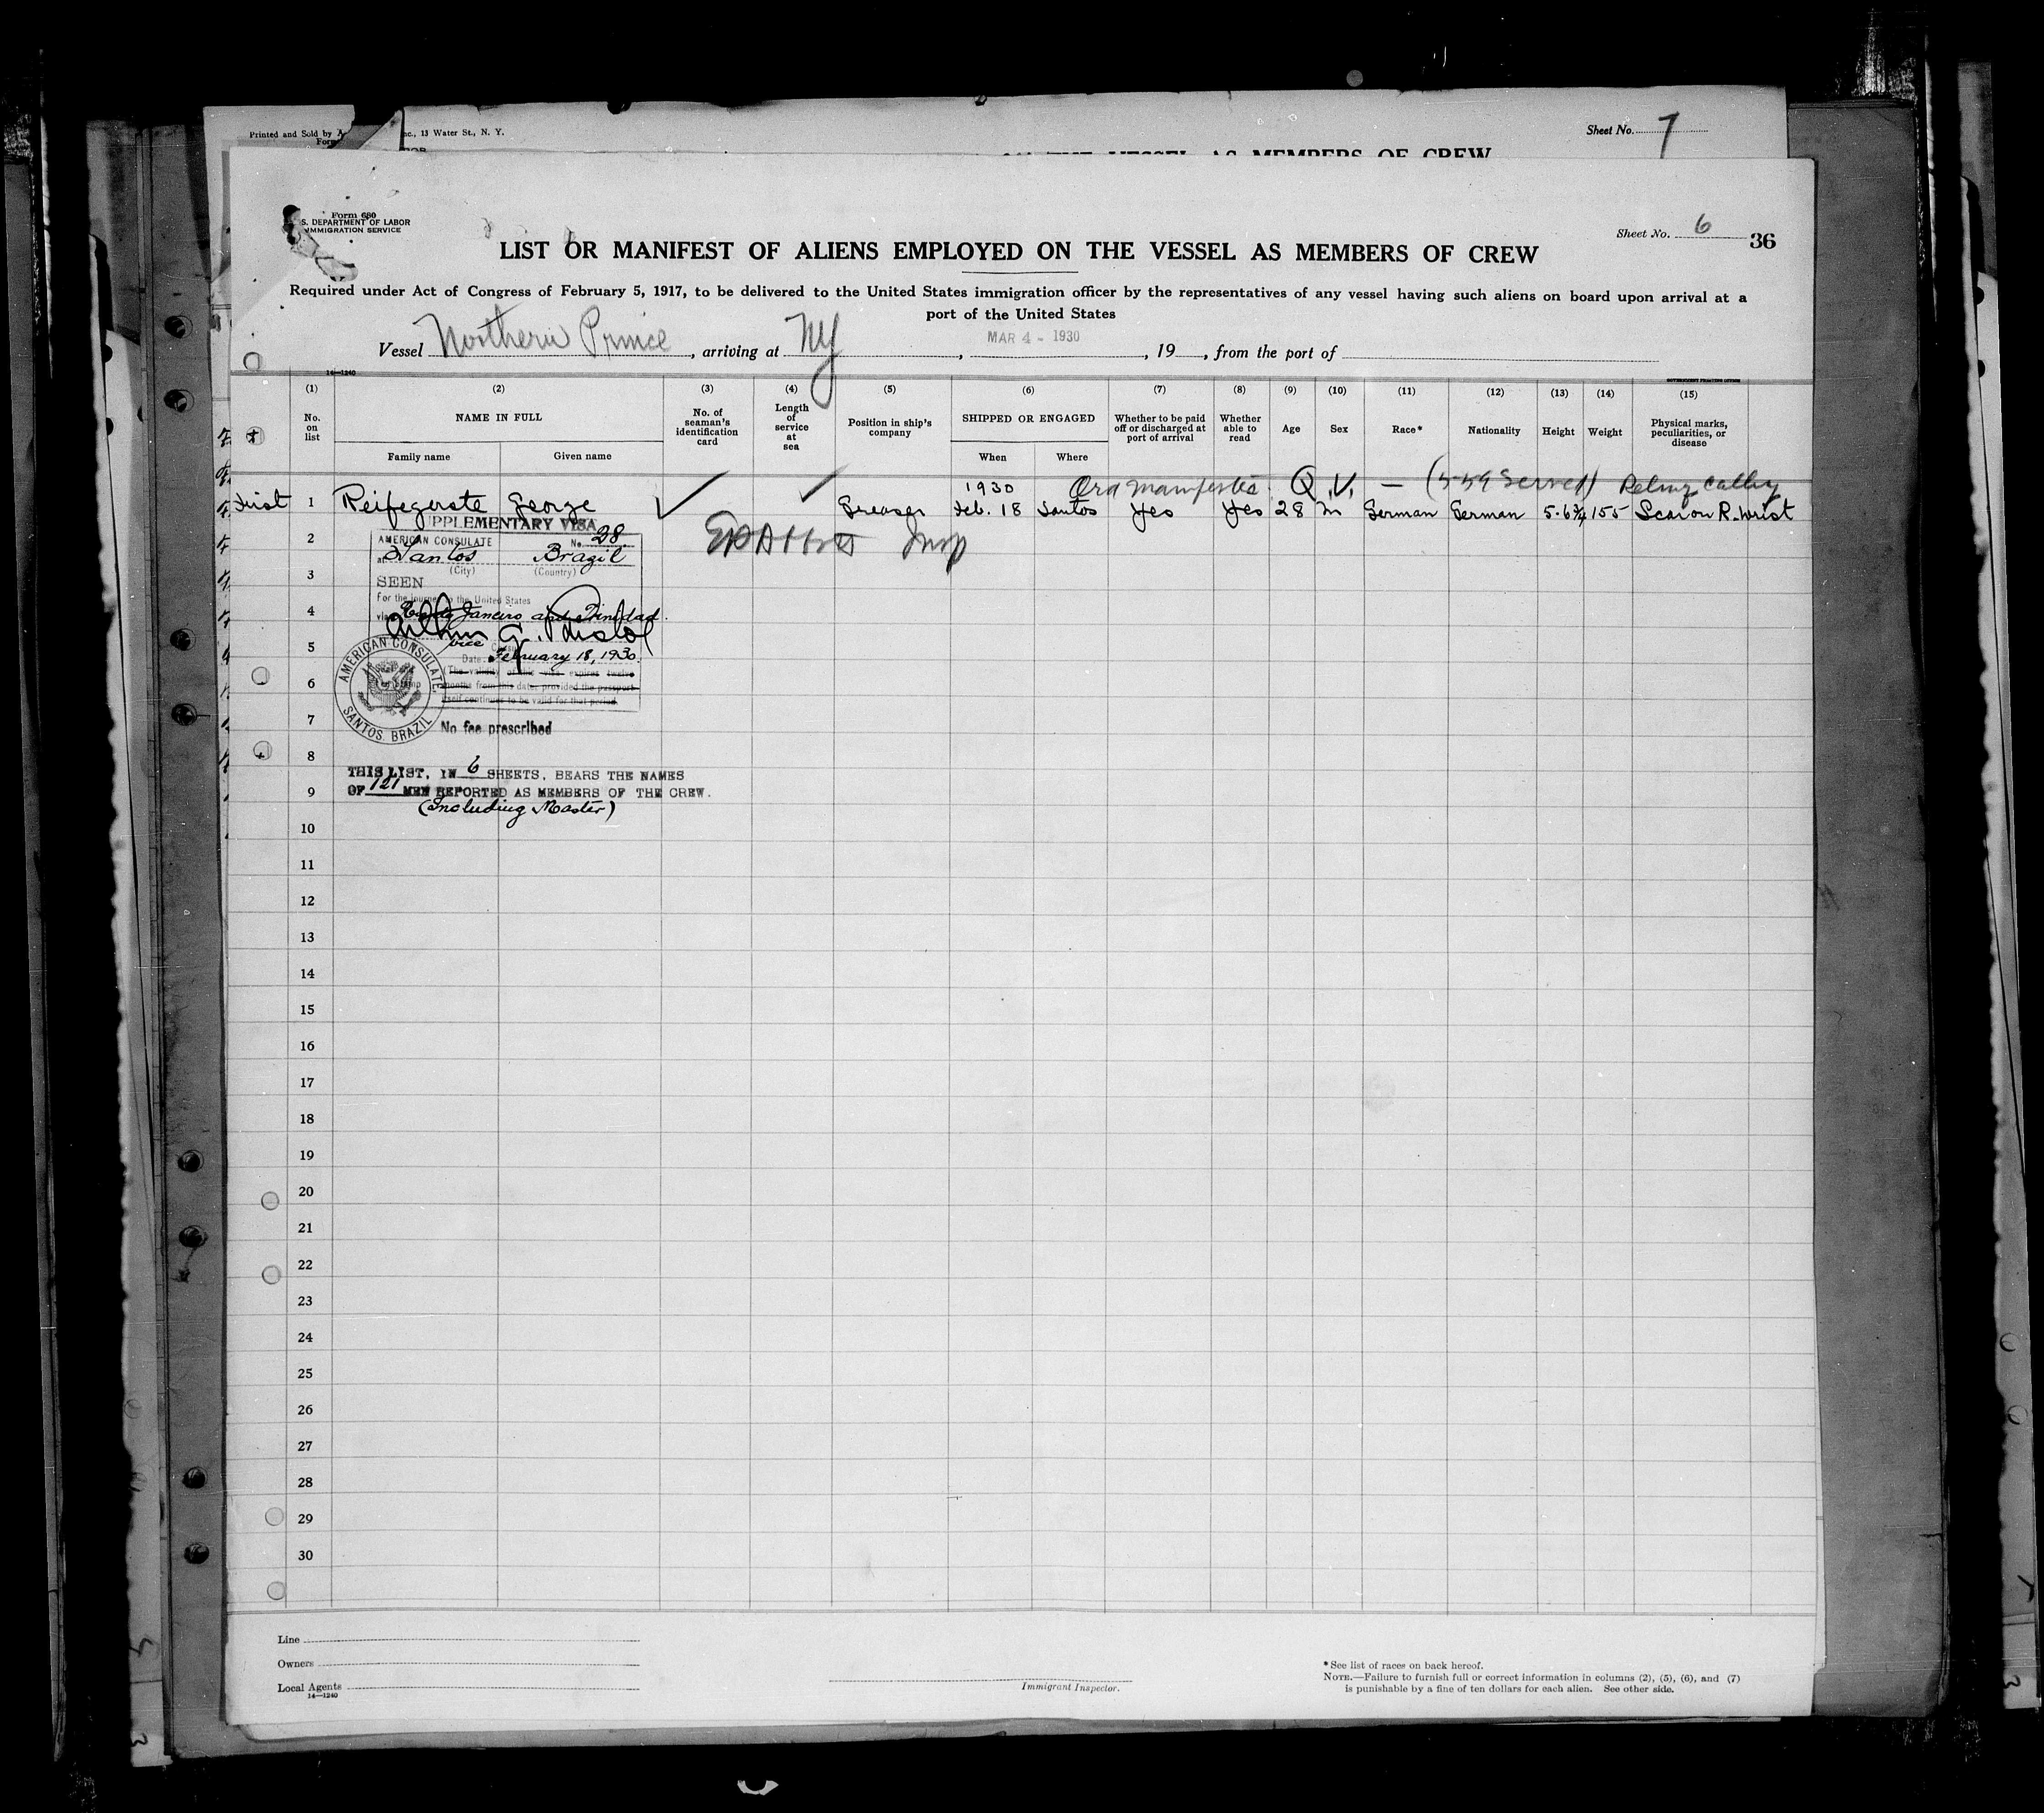 Printed and Sold by
nc., 13 Water St., N. Y.
Sheet No. 7
ON THE VESSEL AS MEMBERS OF CREW
Form 680
S. DEPARTMENT OF LABOR
IMMIGRATION SERVICE
Sheet No. 6
36
LIST OR MANIFEST OF ALIENS EMPLOYED ON THE VESSEL AS MEMBERS OF CREW
Required under Act of Congress of February 5, 1917, to be delivered to the United States immigration officer by the representatives of any vessel having such aliens on board upon arrival at a
port of the United States
Vessel Northern Prince, arriving at NY, MAR 4 - 1930, 19, from the port of
14—1240
GOVERNMENT PRINTING OFFICE
(1) (2) (3) (4) (5) (6) (7) (8) (9) (10) (11) (12) (13) (14) (15)
No. on list
NAME IN FULL
Family name
Given name
No. of seaman's identification card
Length of service at sea
Position in ship's company
SHIPPED OR ENGAGED
When
Where
Whether to be paid off or discharged at port of arrival
Whether able to read
Age
Sex
Race*
Nationality
Height
Weight
Physical marks, peculiarities, or disease
1930 Q.V. — Served)
First 1 Reifegerste George Greaser Feb. 18 Santos Yes Yes 28 M German German 5-6¾ 155 Scar on R. Wrist
SUPPLEMENTARY VISA
2
AMERICAN CONSULATE No. 28
at Santos Brazil
(City) (Country)
3
SEEN
For the journey to the United States
4
via Rio de Janeiro and Trinidad.
5
Vice Consul
Date: February 18, 1930.
(The validity of this visa expires twelve
6
months from this date, provided the passport
itself continues to be valid for that period.
AMERICAN CONSULATE,
SANTOS, BRAZIL
7
No fee prescribed
8
THIS LIST, IN 6 SHEETS, BEARS THE NAMES
9
OF 121 MEN REPORTED AS MEMBERS OF THE CREW.
(Including Master)
10
11
12
13
14
15
16
17
18
19
20
21
22
23
24
25
26
27
28
29
30
Line
Owners
Local Agents
14—1240
Immigrant Inspector.
*See list of races on back hereof.
NOTE.—Failure to furnish full or correct information in columns (2), (5), (6), and (7)
is punishable by a fine of ten dollars for each alien. See other side.